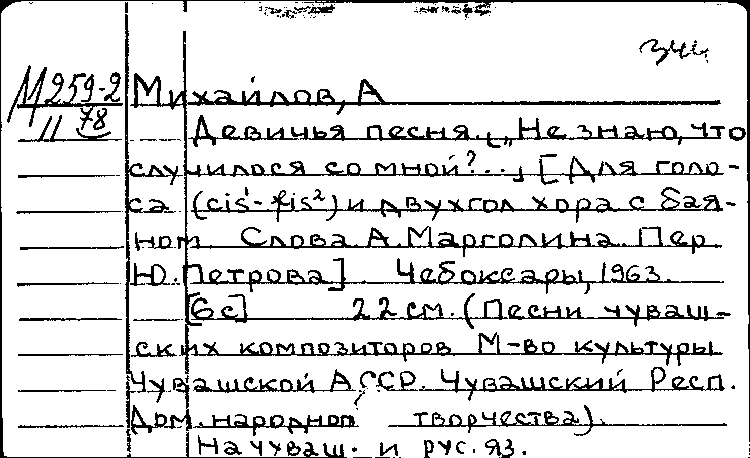 344
М259-2 Михайлов, А
11 78
Девичья песня. [„Не знаю, что
случилося со мной?.." [Для голо-
са (cis¹-fis²) и двухгол хора с бая-
ном. Слова А. Марголина. Пер
Ю. Петрова]. Чебоксары, 1963.
[6 с] 22 см. (Песни чуваш-
ских композиторов М-во культуры
Чувашской АССР. Чувашский Респ.
Дом. народноп творчества).
На чуваш. и рус. яз.